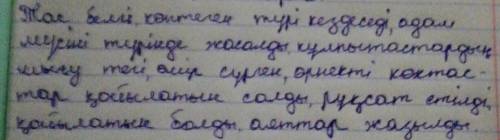 Тас белгі, көптеген түрі кездеседі, адам
мүсіні түрінде жасалды, құлпытастардың
шығу тегі, өмір сүрген, өрнекті көктас-
тар қойылатын салды, рұқсат етілді,
қойылатын болды, аяттар жазылды.